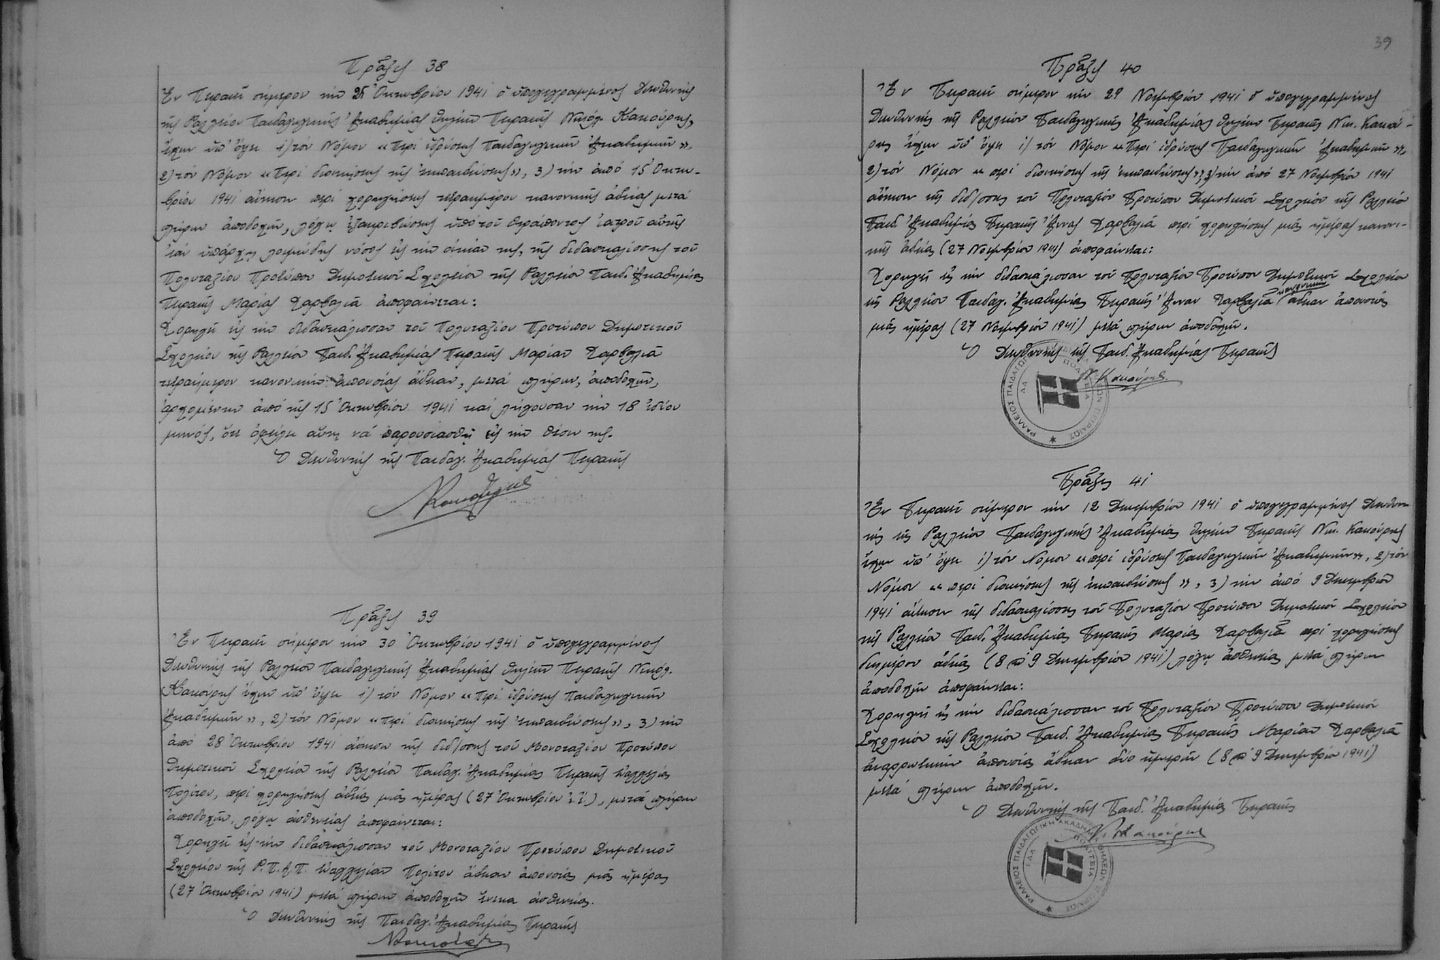 Πρᾶξις 38
Ἐν Πειραιεῖ σήμερον τὴν 25 Ὀκτωβρίου 1941 ὁ ὑπογεγραμμένος Διευθυντὴς
τῆς Ραλλείου Παιδαγωγικῆς Ἀκαδημίας Θηλέων Πειραιῶς Νικόλ. Κακούρης,
ἔχων ὑπ' ὄψει 1) τὸν Νόμον «περὶ ἱδρύσεως Παιδαγωγικῶν Ἀκαδημιῶν»,
2) τὸν Νόμον «περὶ διοικήσεως τῆς ἐκπαιδεύσεως», 3) τὴν ἀπὸ 15 Ὀκτω-
βρίου 1941 αἴτησιν περὶ χορηγήσεως τετραημέρου κανονικῆς ἀδείας μετὰ
πλήρων ἀποδοχῶν, λόγῳ ἐξακριβώσεως ὑπὸ τοῦ θεράποντος ἰατροῦ αὐτῆς
ὑπάρχει λοιμώδης νόσος εἰς τὴν οἰκίαν της, τῆς διδασκαλίσσης τοῦ
Πολυταξίου Προτύπου Δημοτικοῦ Σχολείου τῆς Ραλλείου Παιδ. Ἀκαδημίας
Πειραιῶς Μαρίας Χαρβαλιᾶ ἀποφαίνεται:
Χορηγεῖ εἰς τὴν διδασκάλισσαν τοῦ Πολυταξίου Προτύπου Δημοτικοῦ
Σχολείου τῆς Ραλλείου Παιδ. Ἀκαδημίας Πειραιῶς Μαρίαν Χαρβαλιᾶ
τετραήμερον κανονικὴν ἀπουσίας ἄδειαν, μετὰ πλήρων ἀποδοχῶν,
ἀρχομένην ἀπὸ τῆς 15 Ὀκτωβρίου 1941 καὶ λήγουσαν τὴν 18 ἰδίου
μηνός, ὅτε ὀφείλει αὕτη νὰ παρουσιασθῇ εἰς τὴν θέσιν της.
Ὁ Διευθυντὴς τῆς Παιδαγ. Ἀκαδημίας Πειραιῶς
Ν. Κακούρης
Πρᾶξις 39
Ἐν Πειραιεῖ σήμερον τὴν 30 Ὀκτωβρίου 1941 ὁ ὑπογεγραμμένος
Διευθυντὴς τῆς Ραλλείου Παιδαγωγικῆς Ἀκαδημίας Θηλέων Πειραιῶς Νικόλ.
Κακούρης ἔχων ὑπ' ὄψει 1) τὸν Νόμον «περὶ ἱδρύσεως Παιδαγωγικῶν
Ἀκαδημιῶν», 2) τὸν Νόμον «περὶ διοικήσεως τῆς ἐκπαιδεύσεως», 3) τὴν
ἀπὸ 28 Ὀκτωβρίου 1941 αἴτησιν τῆς διδ/σσης τοῦ Μονοταξίου Προτύπου
Δημοτικοῦ Σχολείου τῆς Ραλλείου Παιδαγ. Ἀκαδημίας Πειραιῶς Εὐαγγελίας
Πολίτου, περὶ χορηγήσεως ἀδείας μιᾶς ἡμέρας (27 Ὀκτωβρίου ἐ.ἔ.), μετὰ πλήρων
ἀποδοχῶν, λόγῳ ἀσθενείας ἀποφαίνεται:
Χορηγεῖ εἰς τὴν διδασκάλισσαν τοῦ Μονοταξίου Προτύπου Δημοτικοῦ
Σχολείου τῆς Ρ.Π.Α.Π. Εὐαγγελίαν Πολίτου ἄδειαν ἀπουσίας μιᾶς ἡμέρας
(27 Ὀκτωβρίου 1941) μετὰ πλήρων ἀποδοχῶν ἕνεκα ἀσθενείας.
Ὁ Διευθυντὴς τῆς Παιδαγ. Ἀκαδημίας Πειραιῶς
Ν. Κακούρης
39
Πρᾶξις 40
Ἐν Πειραιεῖ σήμερον τὴν 29 Νοεμβρίου 1941 ὁ ὑπογεγραμμένος
Διευθυντὴς τῆς Ραλλείου Παιδαγωγικῆς Ἀκαδημίας Θηλέων Πειραιῶς Νικ. Κακού-
ρης ἔχων ὑπ' ὄψει 1) τὸν Νόμον «περὶ ἱδρύσεως Παιδαγωγικῶν Ἀκαδημιῶν»,
2) τὸν Νόμον «περὶ διοικήσεως τῆς ἐκπαιδεύσεως», 3) τὴν ἀπὸ 27 Νοεμβρίου 1941
αἴτησιν τῆς διδ/σσης τοῦ Πολυταξίου Προτύπου Δημοτικοῦ Σχολείου τῆς Ραλλείου
Παιδ. Ἀκαδημίας Πειραιῶς Ἄννας Χαρβαλιᾶ περὶ χορηγήσεως μιᾶς ἡμέρας κανονι-
κῆς ἀδείας (27 Νοεμβρίου 1941) ἀποφαίνεται:
Χορηγεῖ εἰς τὴν διδασκάλισσαν τοῦ Πολυταξίου Προτύπου Δημοτικοῦ Σχολείου
τῆς Ραλλείου Παιδαγ. Ἀκαδημίας Πειραιῶς Ἄνναν Χαρβαλιᾶ κανονικὴν ἄδειαν ἀπουσίας
μιᾶς ἡμέρας (27 Νοεμβρίου 1941) μετὰ πλήρων ἀποδοχῶν.
Ὁ Διευθυντὴς τῆς Παιδ. Ἀκαδημίας Πειραιῶς
Ν. Κακούρης
ΡΑΛΛΕΙΟΣ ΠΑΙΔΑΓΩΓΙΚΗ ΑΚΑΔΗΜΙΑ ΘΗΛΕΩΝ ΠΕΙΡΑΙΩΣ
ΠΟΛΙΤΕΙΑ
Πρᾶξις 41
Ἐν Πειραιεῖ σήμερον τὴν 12 Δεκεμβρίου 1941 ὁ ὑπογεγραμμένος Διευθυν-
τὴς τῆς Ραλλείου Παιδαγωγικῆς Ἀκαδημίας Θηλέων Πειραιῶς Νικ. Κακούρης
ἔχων ὑπ' ὄψει 1) τὸν Νόμον «περὶ ἱδρύσεως Παιδαγωγικῶν Ἀκαδημιῶν», 2) τὸν
Νόμον «περὶ διοικήσεως τῆς ἐκπαιδεύσεως», 3) τὴν ἀπὸ 9 Δεκεμβρίου
1941 αἴτησιν τῆς διδασκαλίσσης τοῦ Πολυταξίου Προτύπου Δημοτικοῦ Σχολείου
τῆς Ραλλείου Παιδ. Ἀκαδημίας Πειραιῶς Μαρίας Χαρβαλιᾶ περὶ χορηγήσεως
διημέρου ἀδείας (8 καὶ 9 Δεκεμβρίου 1941) λόγῳ ἀσθενείας μετὰ πλήρων
ἀποδοχῶν ἀποφαίνεται:
Χορηγεῖ εἰς τὴν διδασκάλισσαν τοῦ Πολυταξίου Προτύπου Δημοτικοῦ
Σχολείου τῆς Ραλλείου Παιδ. Ἀκαδημίας Πειραιῶς Μαρίαν Χαρβαλιᾶ
ἀναρρωτικὴν ἀπουσίας ἄδειαν δύο ἡμερῶν (8 καὶ 9 Δεκεμβρίου 1941)
μετὰ πλήρων ἀποδοχῶν.
Ὁ Διευθυντὴς τῆς Παιδ. Ἀκαδημίας Πειραιῶς
Ν. Κακούρης
ΡΑΛΛΕΙΟΣ ΠΑΙΔΑΓΩΓΙΚΗ ΑΚΑΔΗΜΙΑ ΘΗΛΕΩΝ ΠΕΙΡΑΙΩΣ
ΠΟΛΙΤΕΙΑ